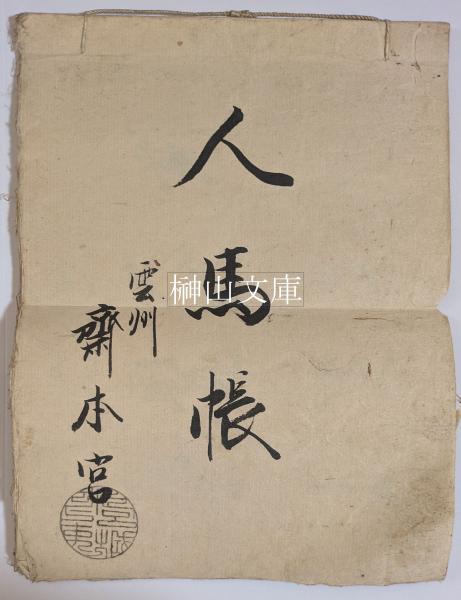 人馬帳
雲州
齋本宮
榊山文庫